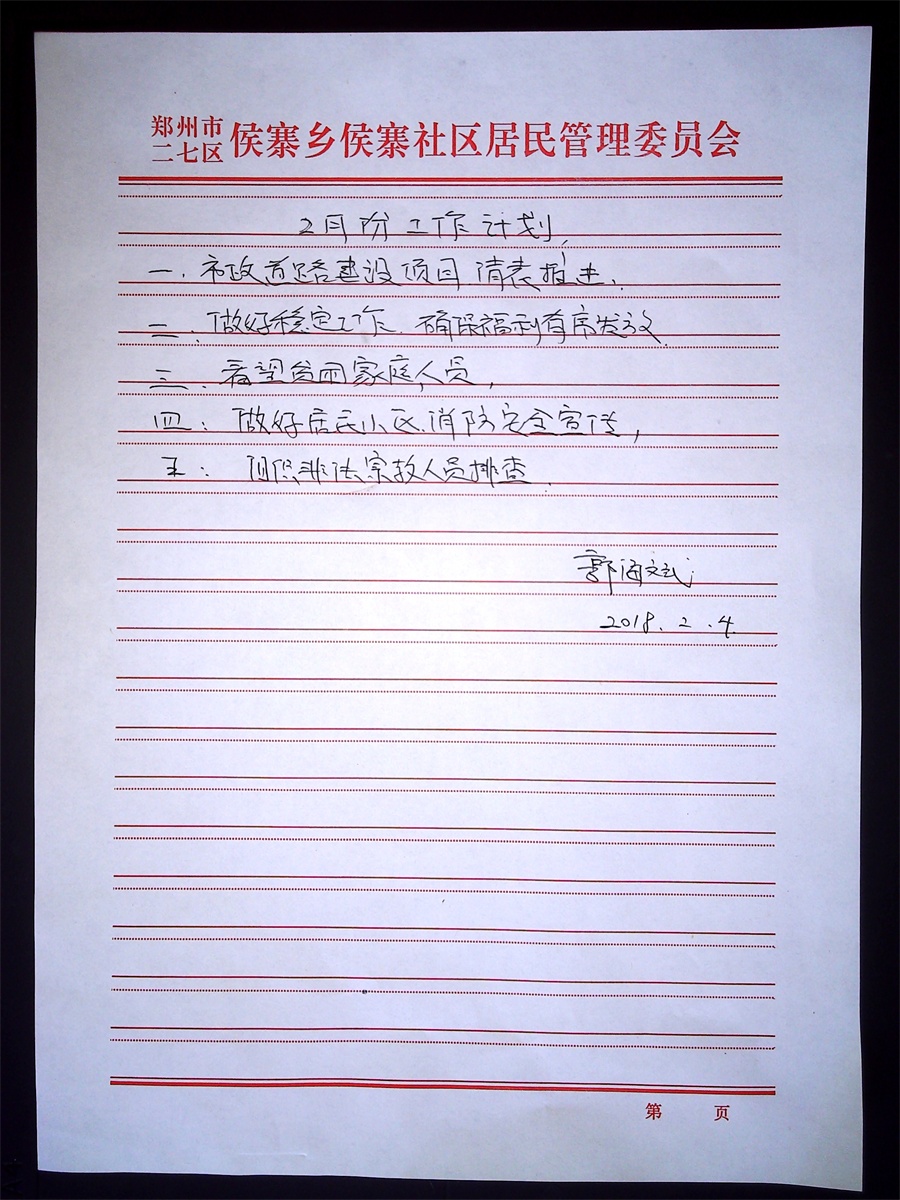 郑州市
二七区 侯寨乡侯寨社区居民管理委员会
2月份工作计划,
一. 市政道路建设项目.清表推进.
二. 做好稳定工作. 确保福利有序发放.
三. 看望贫困家庭人员,
四: 做好居民小区.消防安全宣传,
五: 非法宗教人员排查.
郭海斌
2018.2.4.
第 页